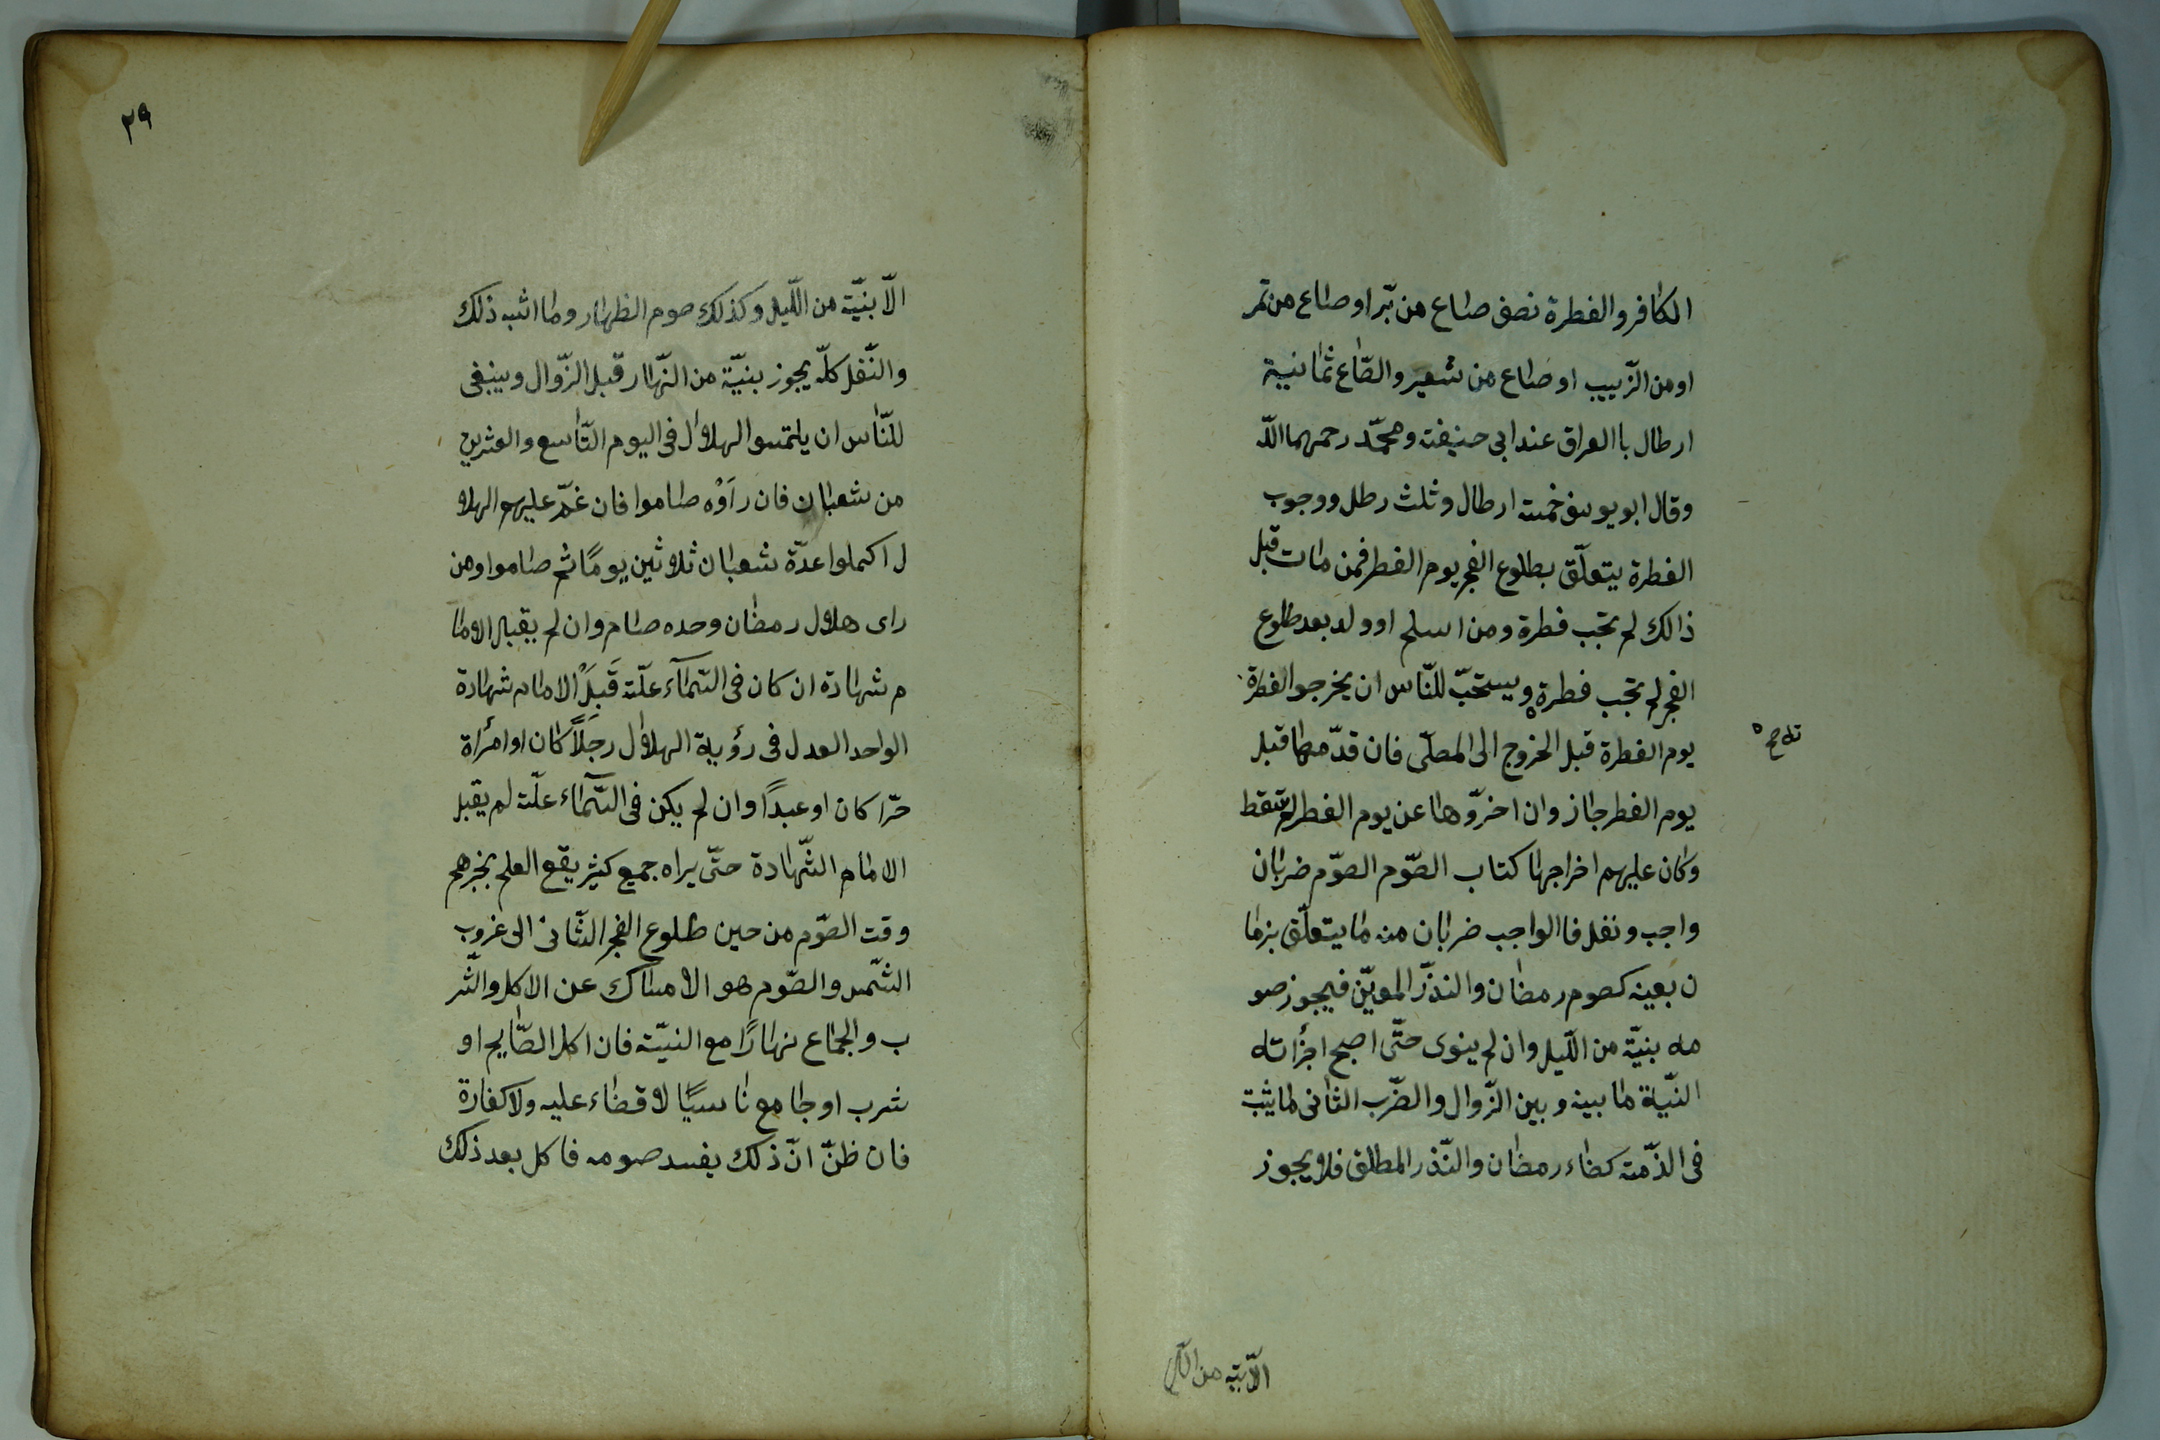 الكافر والفطرة نصف صاع من بّر او صاع من تمر
او من الزّبيب او صاع من شعير والصّاع ثمانية
ارطال باالعراق عند ابى حنيفة ومحمّد رحمهما اللّه
وقال ابو يوسف خمسة ارطال وثلث رطل ووجوب
الفطرة يتعلّق بطلوع الفجر يوم الفطر فمن مات قبل
ذالك لم تجب فطرة ومن اسلم او ولد بعد طلوع
الفجر لم تجب فطرة ويستحبّ للنّاس ان يخرجوا الفطرة
يوم الفطرة قبل الخروج الى المصلّى فان قدّمها قبل
يوم الفطر جاز وان اخرّوها عن يوم الفطر لم تسقط
وكان عليهم اخراجها كتاب الصّوم الصّوم ضربان
واجب ونفل فا الواجب ضربان منه ما يتعلّق بزما
ن بعينه كصوم رمضان والنذّر المويّن فيجوز صو
مه بنيّة من اللّيل وان لم ينوى حتّى اصبح اجزأته
النّيّة ما بينه وبين الزّوال والضّرب الثّانى لما يثبت
فى الذّمّة كضاء رمضان والنّذر المطلق فلا يجوز
الّا بنيّة من
٢٩
الّا بنيّة من اللّيل وكذلك صوم الظهار وما اشبه ذلك
والنّفل كلّه يجوز بنيّة من النّهار قبل الزّوال وينبغى
للنّاس ان يلتمسوا الهلال فى اليوم التّاسع والعشرين
من شعبان فان رآوْه صاموا فان غمّ عليهم الهلا
ل اكملوا عدّة شعبان ثلاثين يومًا ثم صاموا ومن
راى هلال رمضان وحده صام وان لم يقبل الاما
م شهادة ان كان فى السّمآء علّة قَبِلَ الامام شهادة
الواحد العدل فى رؤية الهلال رجلًا كان او امرأة
حرّا كان او عبدًا وان لم يكن فى السّمآء علّة لم يقبل
الامام الشّهادة حتّى يراه جمع كثير يقع العلم بخبرهم
وقت الصّوم من حين طلوع الفجر الثّانى الى غروب
الشّمس والصّوم هو الامساك عن الاكل والشّر
ب والجماع نهارًا مع النيّة فان اكل الصّايم او
شرب او جامع ناسيًا لا قضاء عليه ولا كفارة
فان ظنّ انّ ذلك يفسد صومه فاكل بعد ذلك